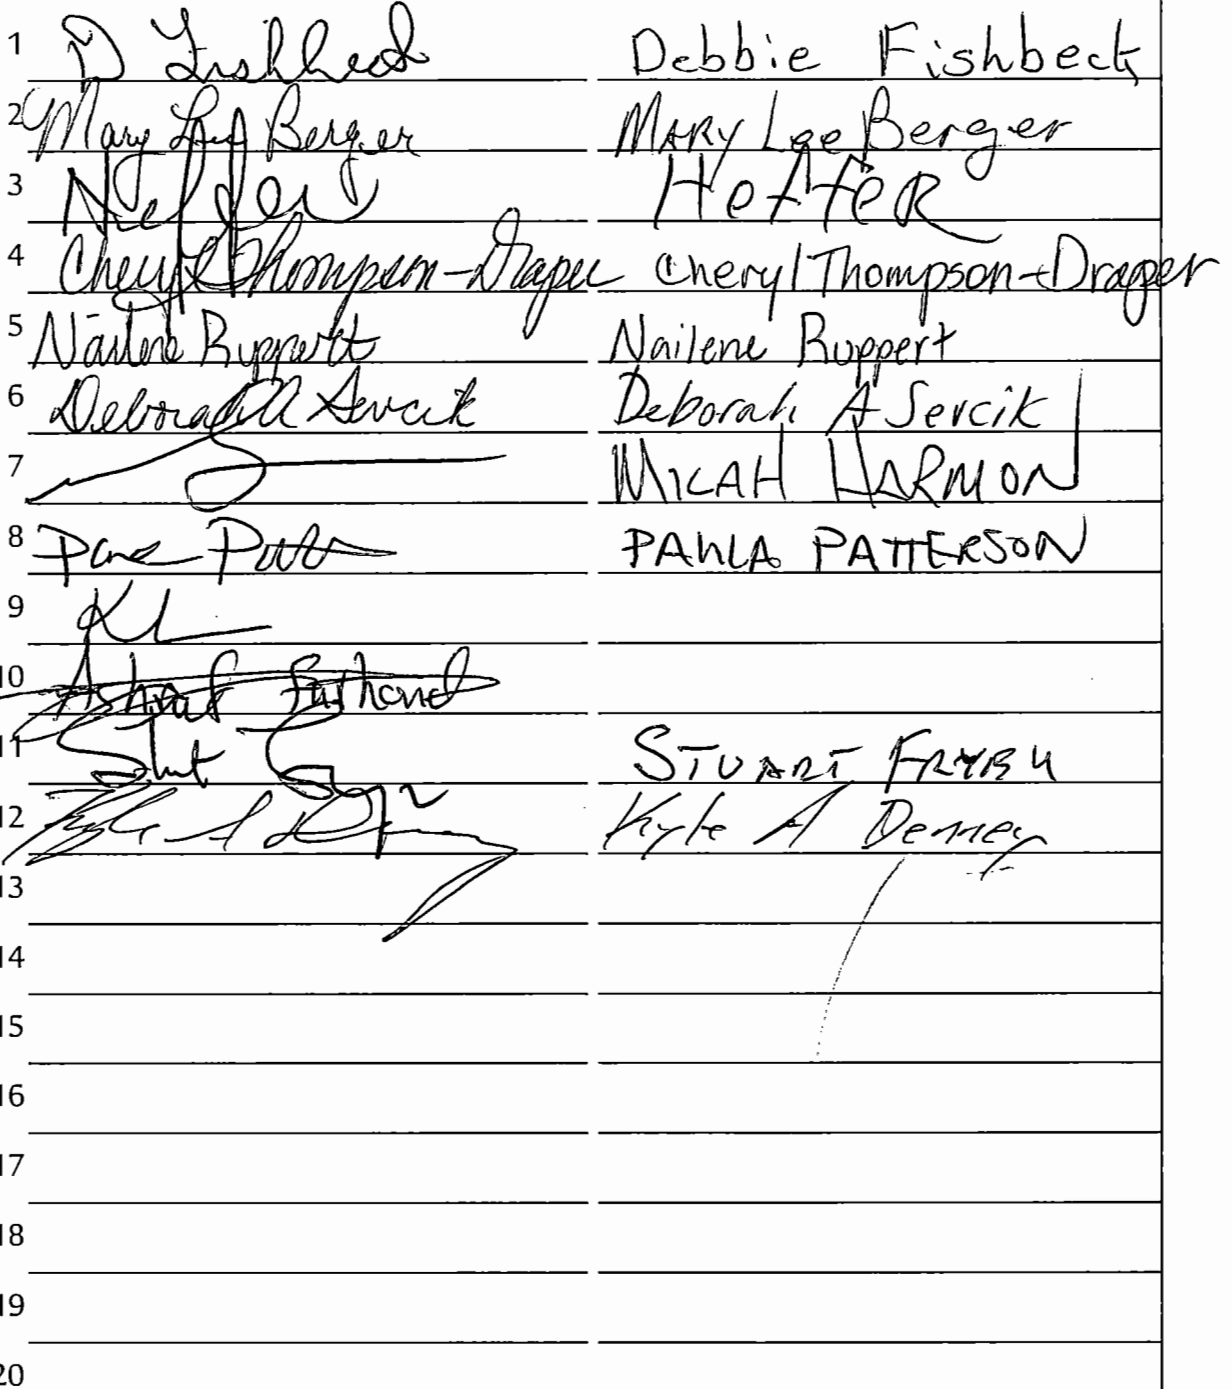 1 D Fishbeck Debbie Fishbeck
2 Mary Lee Berger MARY Lee Berger
3 Heffer HeffeR
4 Cheryl Thompson-Draper Cheryl Thompson-Draper
5 Nailene Ruppert Nailene Ruppert
6 Deborah A Sevcik Deborah A Sevcik
7 MICAH HARMON
8 PAULA PATTERSON
9
10 Ashraf Farhand
11 STUART
12 Kyle A Denney
13
14
15
16
17
18
19
20